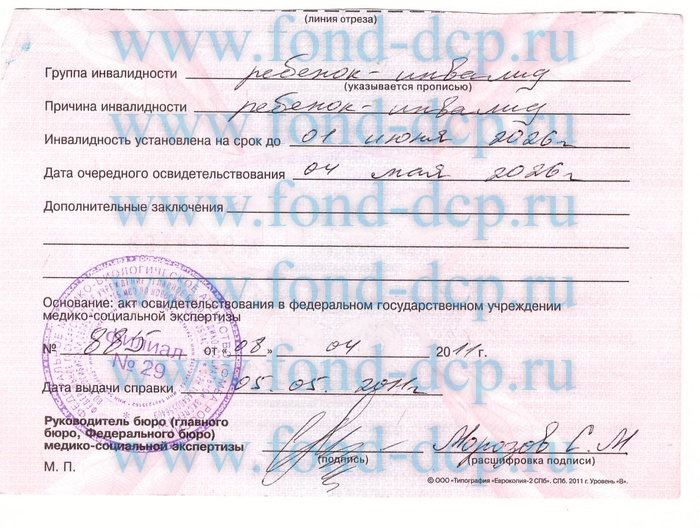 (линия отреза)
www.fond-dcp.ru
Группа инвалидности ребенок-инвалид
(указывается прописью)
Причина инвалидности ребенок-инвалид
www.fond-dcp.ru
Инвалидность установлена на срок до 01 июня 2026г
Дата очередного освидетельствования 04 мая 2026г
www.fond-dcp.ru
Дополнительные заключения
www.fond-dcp.ru
Основание: акт освидетельствования в федеральном государственном учреждении
медико-социальной экспертизы
Филиал
№ 29
№ 885 от «08» 04 2011 г.
www.fond-dcp.ru
Дата выдачи справки 05.05.2011г
Руководитель бюро (главного
бюро, Федерального бюро)
медико-социальной экспертизы Морозов С.М
(подпись) (расшифровка подписи)
www.fond-dcp.ru
М. П.
© ООО «Типография «Еврокопия-2 СПб». СПб. 2011 г. Уровень «В».